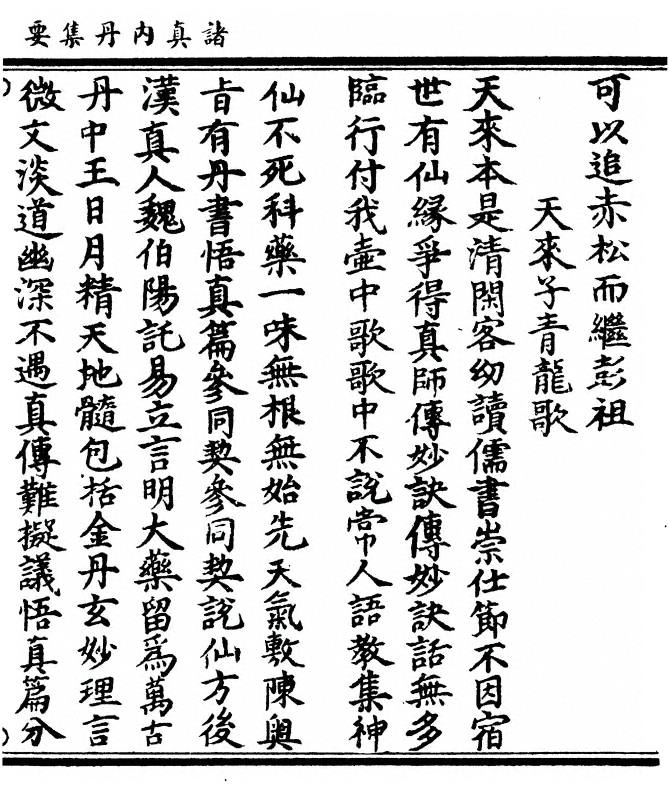 諸真内丹集要
可以追赤松而繼彭祖
天來子青龍歌
天來本是清閑客幼讀儒書崇仕節不因宿
世有仙緣爭得真師傳妙訣傳妙訣話無多
臨行付我壷中歌歌中不說常人語教集神
仙不死科藥一味無根無始先天氣敷陳奥
旨有丹書悟真篇參同契參同契詫仙方後
漢真人魏伯陽託易立言明大藥留爲萬古
丹中王日月精天地髓包括金丹玄妙理言
微文淡道幽深不遇真傳難擬議悟真篇分